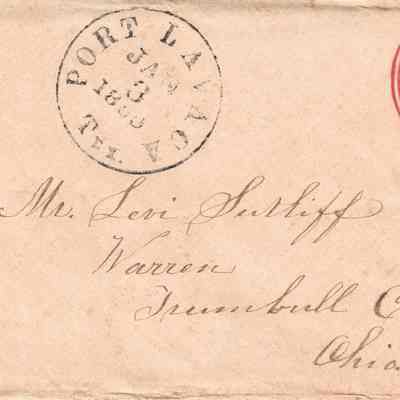 PORT LAVACA
JAN
3
Tex.
Mr. Levi Sutliff
Warren
Trumbull C
Ohio